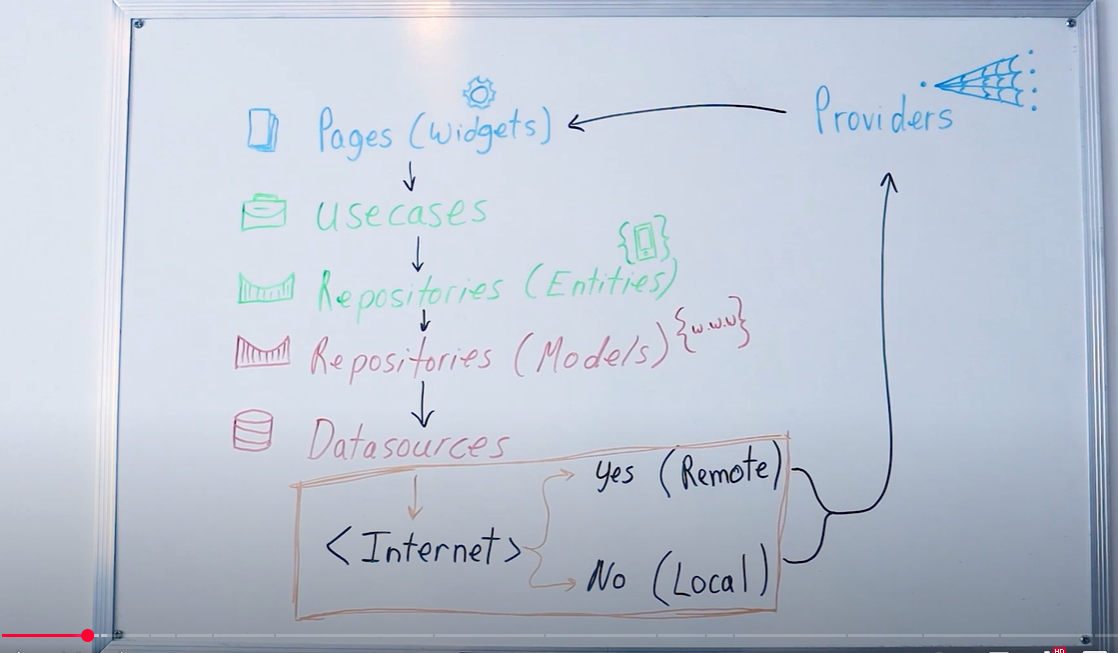 Pages (Widgets)
Providers
usecases
Repositories (Entities)
Repositories (Models) {w.w.w}
Datasources
Yes (Remote)
<Internet>
No (Local)
HD